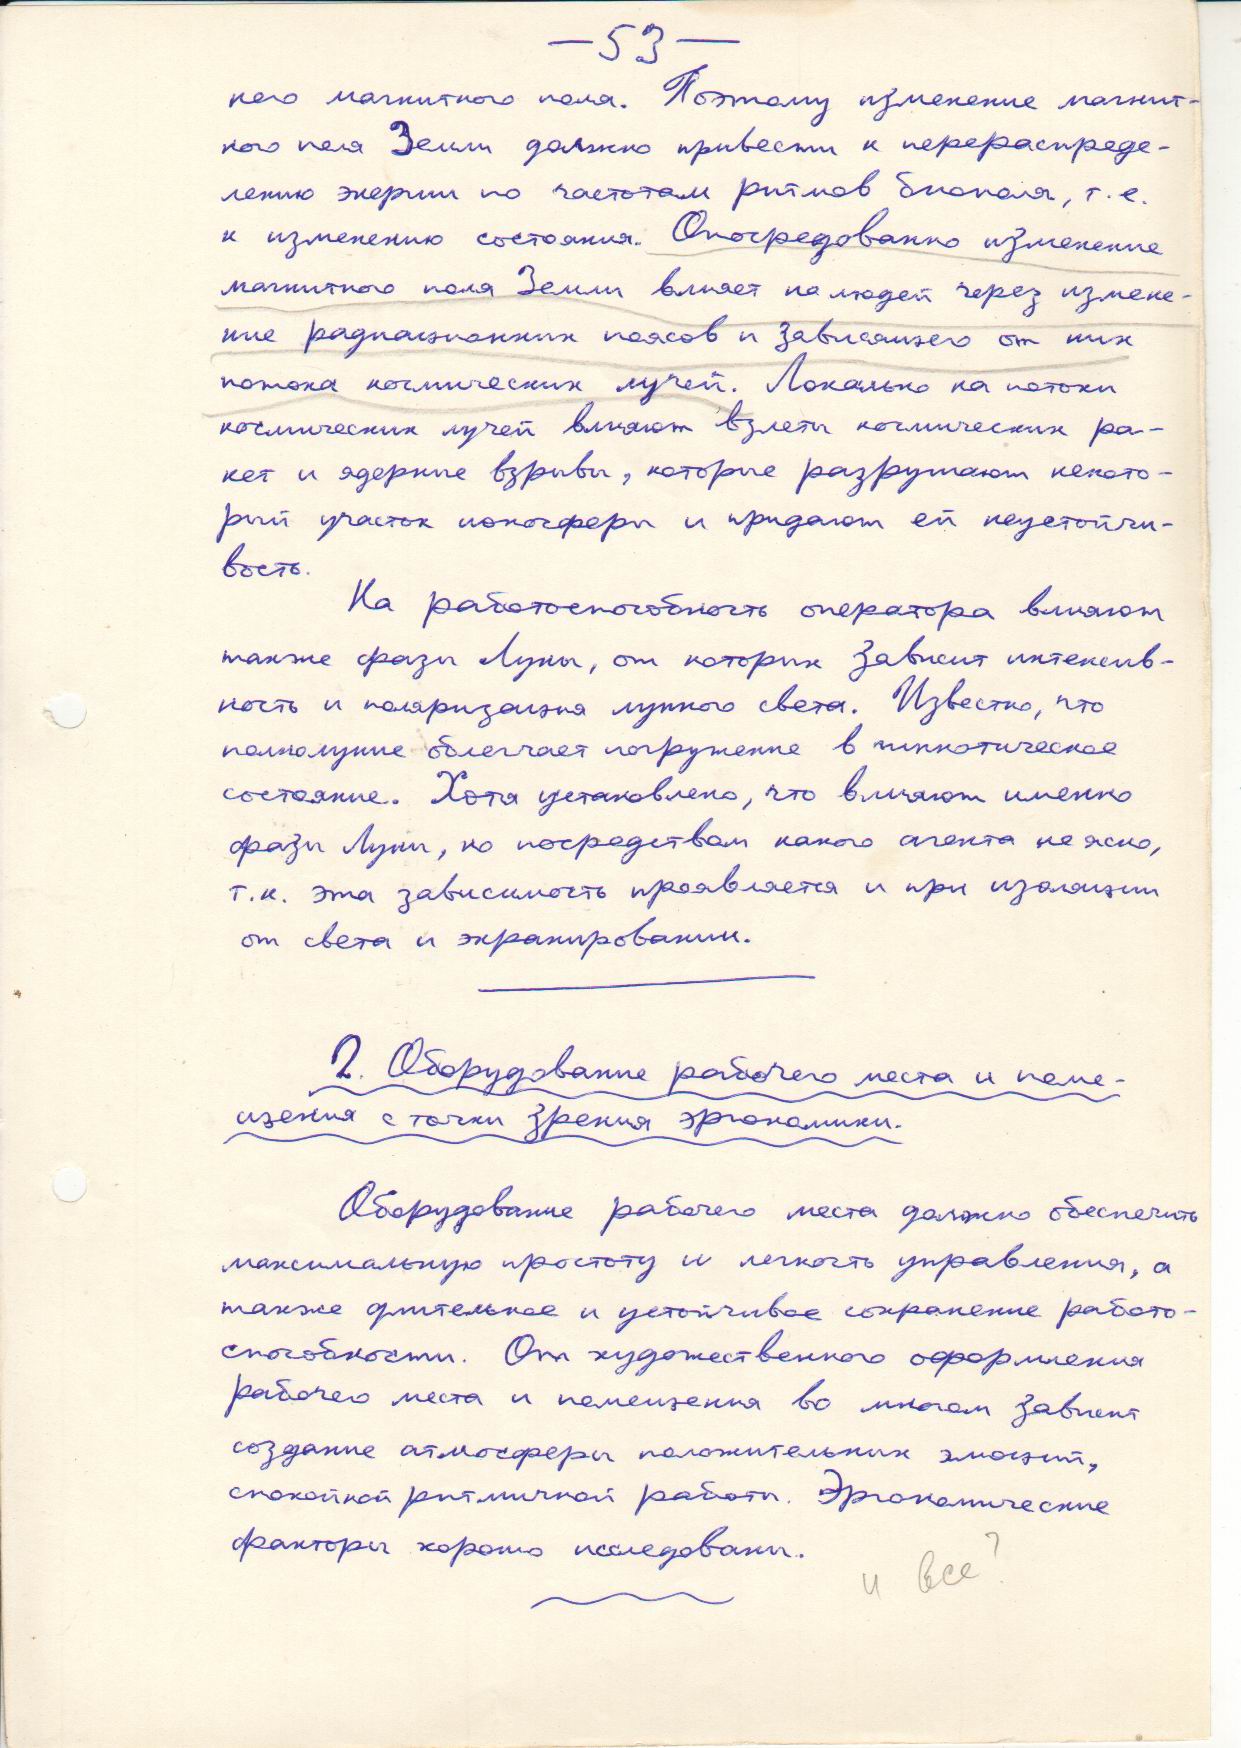 — 53 —
него магнитного поля. Поэтому изменение магнит-
ного поля Земли должно привести к перераспреде-
лению энергии по частотам ритмов биополя, т.е.
к изменению состояния. Опосредованно изменение
магнитного поля Земли влияет на людей через измене-
ние радиационных поясов и зависящего от них
потока космических лучей. Локально на потоки
космических лучей влияют взлеты космических ра-
кет и ядерные взрывы, которые разрушают некото-
рый участок ионосферы и придают ей неустойчи-
вость.
На работоспособность оператора влияют
также фазы Луны, от которых зависит интенсив-
ность и поляризация лунного света. Известно, что
полнолуние облегчает погружение в гипнотическое
состояние. Хотя установлено, что влияют именно
фазы Луны, но посредством какого агента не ясно,
т.к. эта зависимость проявляется и при изоляции
от света и экранировании.
2. Оборудование рабочего места и поме-
щения с точки зрения эргономики.
Оборудование рабочего места должно обеспечить
максимальную простоту и легкость управления, а
также длительное и устойчивое сохранение работо-
способности. От художественного оформления
рабочего места и помещения во многом зависит
создание атмосферы положительных эмоций,
спокойной ритмичной работы. Эргономические
факторы хорошо исследованы.
и все?